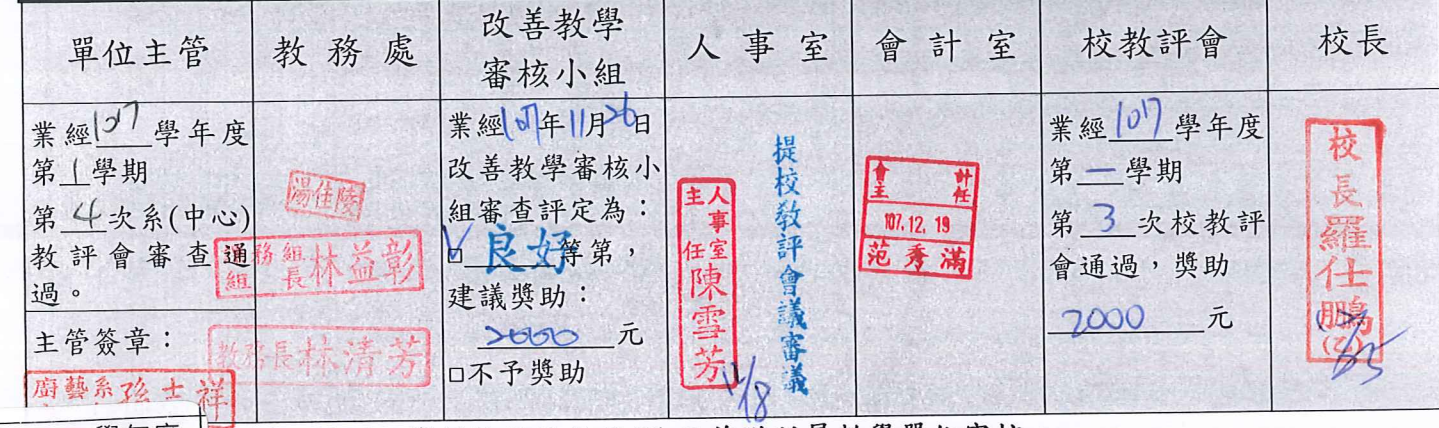 單位主管
教務處
改善教學
審核小組
人事室
會計室
校教評會
校長
業經107學年度
第1學期
第4次系(中心)
教評會審查通
過。
主管簽章：
廚藝系孫士祥
湯佳陵
務組
組長林益彰
教務長林清芳
業經107年11月26日
改善教學審核小
組審查評定為：
□良好等第，
建議獎助：
2000元
□不予獎助
人事室
主任陳雪芳
提校教評會議審議
12/18
會計
主任
107.12.19
范秀滿
業經107學年度
第一學期
第3次校教評
會通過，獎助
2000元
校長羅仕鵬(乙)
12/25
學年度